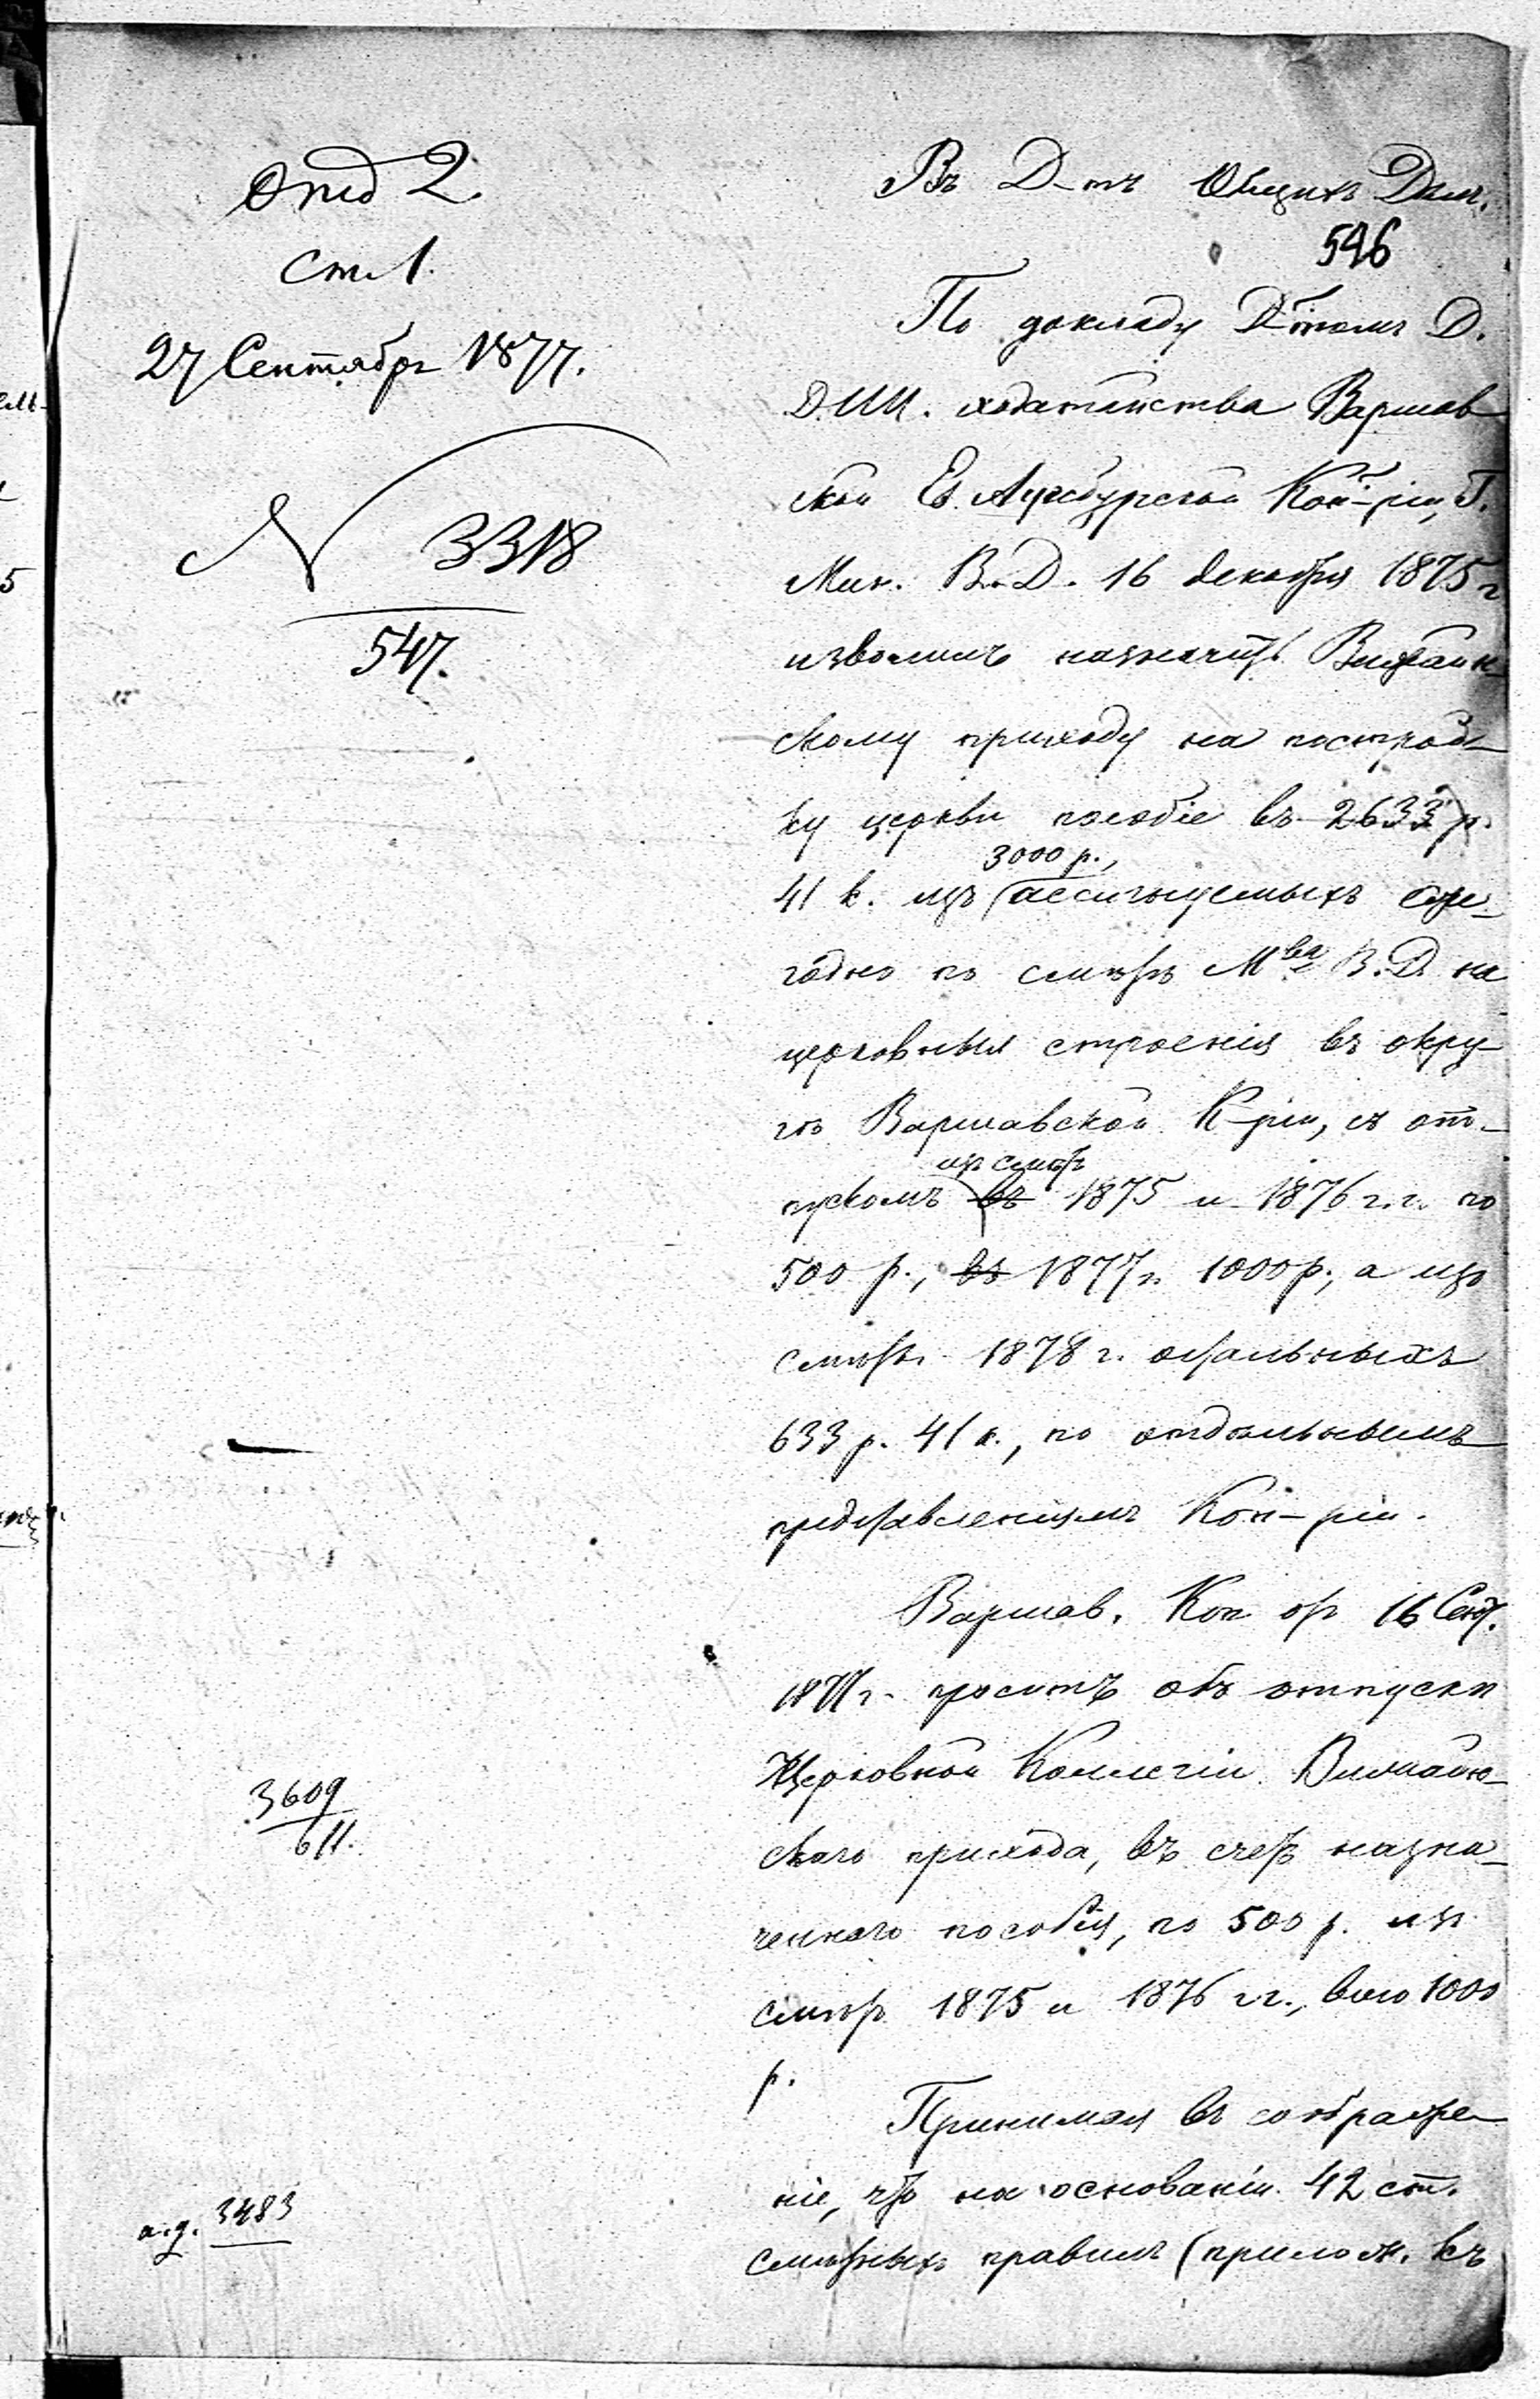 Отд 2.
Ст. 1.
27 Сентября 1877.
N 3318
547.
3609
611.
а. д. 3483
Въ Д-тъ Общихъ Делъ.
546
По докладу Д-томъ Д.
Д. И И. ходатайства Варшав
ской Ев. Аугсбургской Кон-ріи, Г.
Мин. В. Д. 16 декабря 1875 г
изволилъ назначить Вижайн-
скому приходу на построй-
ку церкви пособіе въ 2633 р.
3000 р.,
41 к. изъ ассигнуемыхъ еже-
годно по смѣтѣ М-ва В. Д. на
церковныя строенія въ окру-
гѣ Варшавской К-ріи, съ от-
изъ смѣтъ
пускомъ въ 1875 и 1876 г.г. по
500 р., въ 1877 г. 1000 р., а изъ
смѣты 1878 г. остальныхъ
633 р. 41 к., по отдѣльнымъ
представленіямъ Кон-ріи.
Варшав. Кон от 16 Сент.
1877 г. проситъ объ отпускѣ
Церковной Коллегіи Вижайн-
скаго прихода, въ счетъ назна-
ченнаго пособія, по 500 р. изъ
смѣтъ 1875 и 1876 гг., всего 1000
р.
Принимая въ соображе-
ніе, что на основаніи 42 ст.
смѣтныхъ правилъ (прилож. къ